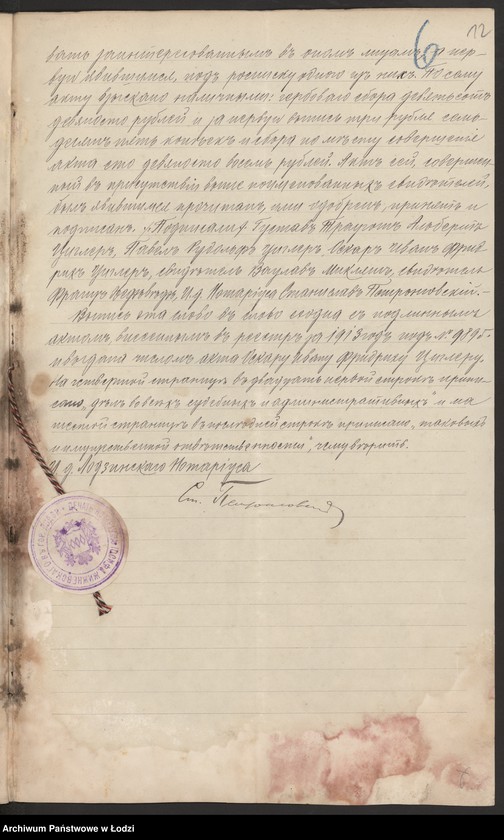 12
6
вать заинтересованнымъ въ ономъ лицамъ, а пер-
вую явившимся, подъ росписку одного изъ нихъ. По сему
акту взыскано наличными: гербоваго сбора девятьсотъ
девяносто рублей и за первую выпись три рубля семь-
десятъ пять копѣекъ и сбора по мѣсту совершенія
акта сто девяносто восемь рублей. Актъ сей, совершен-
ный въ присутствіи выше поименованныхъ свидѣтелей,
былъ явившимся прочитанъ, ими одобренъ, принятъ и
подписанъ. /Подписали/ Густавъ Трауготъ Альбертъ
Циглеръ, Павелъ Рудольфъ Циглеръ, Оскаръ Иванъ Фрид-
рихъ Циглеръ, свидѣтель Вацлавъ свидѣтель
Францъ И.д. Нотаріуса Станиславъ Петрожовскій.-
Выпись эта слово въ слово сходна съ подлиннымъ
актомъ, внесеннымъ въ реестръ за 1913 годъ подъ № 9895
и выдана числомъ акта Оскару Ивану Фридриху Циглеру.
На четвертой страницѣ въ двадцать первой строкѣ припи-
сано: "дѣлъ во всѣхъ судебныхъ и административныхъ" и на
шестой страницѣ въ послѣдней строкѣ приписано, "таковыхъ
и имущественной отвѣтственности", чему вѣрить.
И. д. Лодзинскаго Нотаріуса
Ст. Петрожовскій
Archiwum Państwowe w Łodzi